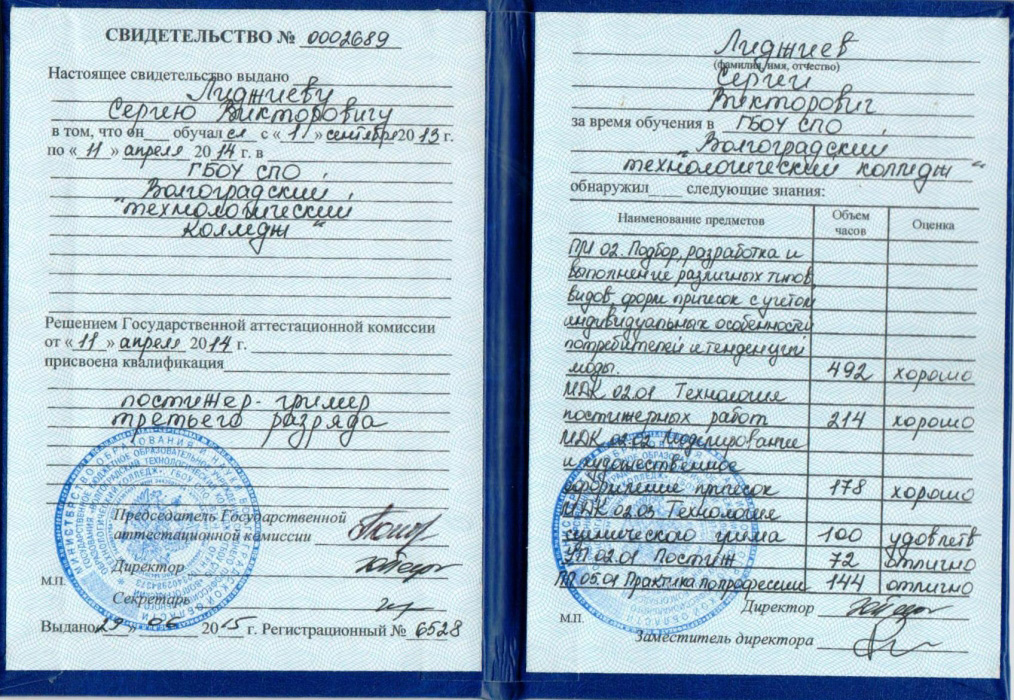 СВИДЕТЕЛЬСТВО № 0002689
Настоящее свидетельство выдано
Лиджиеву
Сергею Викторовичу
в том, что он обучался с «11» сентября 2013 г.
по «11» апреля 2014 г. в
ГБОУ СПО
Волгоградский
"технологический
колледж"
Решением Государственной аттестационной комиссии
от «11» апреля 2014 г.
присвоена квалификация
постижер-гример
третьего разряда
Председатель Государственной
аттестационной комиссии
Директор
М.П.
Секретарь
Выдано 29 » 06 2015 г. Регистрационный № 6528
Лиджиев
(фамилия, имя, отчество)
Сергей
Викторович
за время обучения в ГБОУ СПО
Волгоградский
"технологический колледж"
обнаружил следующие знания:
Наименование предметов Объем часов Оценка
ПМ 02. Подбор, разработка и
выполнение различных типов,
видов, форм причесок с учетом
индивидуальных особенностей
потребителей и тенденций
моды. 492 хорошо
МДК 02.01 Технология
постижерных работ 214 хорошо
МДК 02.02 Моделирование
и художественное
оформление причесок 178 хорошо
МДК 02.03 Технология
сценического грима 100 удовлетв
УП 02.01 Постиж 72 отлично
ПП 05.01 Практика по профессии 144 отлично
Директор
М.П.
Заместитель директора